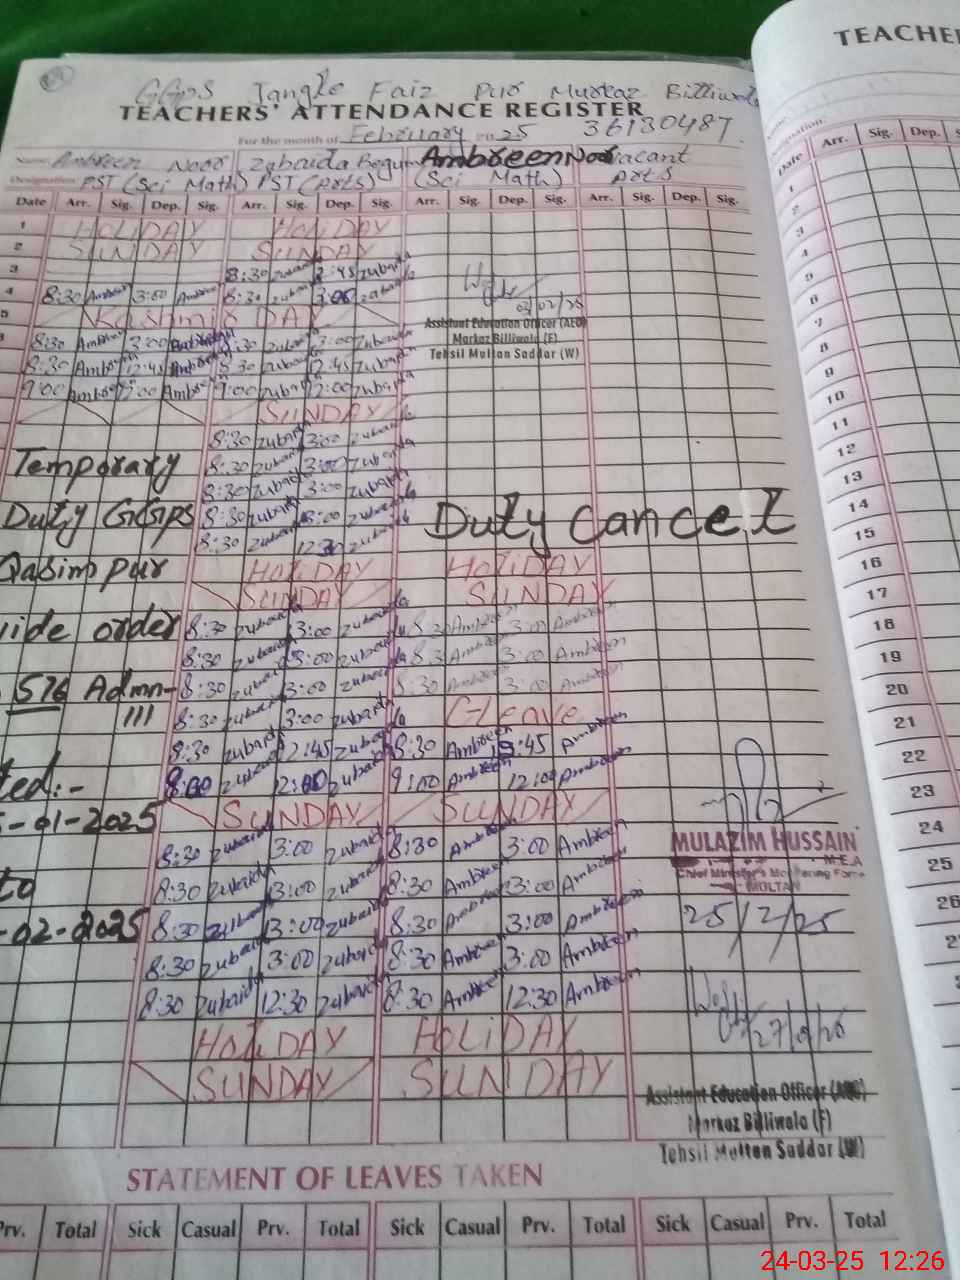 GGPS Jangle Faiz Pur Markaz Billiwala
TEACHERS' ATTENDANCE REGISTER
For the month of February 2025 36130487
Name: Ambreen Noor Zubaida Begum Ambreen Noor Vacant
Designation: PST (Sci Math) PST (Arts) (Sci Math) Arts
Date Arr. Sig. Dep. Sig. Arr. Sig. Dep. Sig. Arr. Sig. Dep. Sig. Arr. Sig. Dep. Sig.
1 HOLIDAY HOLIDAY
2 SUNDAY SUNDAY
3 8:30 zubaida 2:45 zubaida
4 8:30 Ambreen 3:00 Ambreen 8:30 zubaida 3:00 zubaida
5 Kashmir DAY
8:30 Ambreen 3:00 Ambreen 8:30 zubaida 3:00 zubaida
8:30 Ambreen 12:45 Ambreen 8:30 zubaida 12:45 zubaida
9:00 Ambreen 12:00 Ambreen 9:00 zubaida 12:00 zubaida
Assistant Education Officer (AEO)
Markaz Billiwala (F)
Tehsil Multan Saddar (W)
SUNDAY
8:30 zubaida 3:00 zubaida
Temporary 8:30 zubaida 3:00 zubaida
8:30 zubaida 3:00 zubaida
Duty GGPS 8:30 zubaida 3:00 zubaida Duty Cancel
8:30 zubaida 12:30 zubaida
Qasim pur HOLIDAY HOLIDAY
SUNDAY SUNDAY
vide order 8:30 zubaida 3:00 zubaida 8:30 Ambreen 3:00 Ambreen
8:30 zubaida 3:00 zubaida 8:30 Ambreen 3:00 Ambreen
576 Admn- 8:30 zubaida 3:00 zubaida 8:30 Ambreen 3:00 Ambreen
III 8:30 zubaida 3:00 zubaida C leave
8:30 zubaida 12:45 zubaida 8:30 Ambreen 12:45 Ambreen
ted:- 9:00 zubaida 12:00 zubaida 9:00 Ambreen 12:00 Ambreen
-01-2025 SUNDAY SUNDAY
8:30 zubaida 3:00 zubaida 8:30 Ambreen 3:00 Ambreen
to 8:30 zubaida 3:00 zubaida 8:30 Ambreen 3:00 Ambreen
-02-2025 8:30 zubaida 3:00 zubaida 8:30 Ambreen 3:00 Ambreen
8:30 zubaida 3:00 zubaida 8:30 Ambreen 3:00 Ambreen
8:30 zubaida 12:30 zubaida 8:30 Ambreen 12:30 Ambreen
HOLIDAY HOLIDAY
SUNDAY SUNDAY
MULAZIM HUSSAIN
M.E.A
Chief Minister's Monitoring Force
MULTAN
25/2/25
Assistant Education Officer (AEO)
Markaz Billiwala (F)
Tehsil Multan Saddar (W)
STATEMENT OF LEAVES TAKEN
Prv. Total Sick Casual Prv. Total Sick Casual Prv. Total Sick Casual Prv. Total
TEACHE
Date Arr. Sig. Dep. Sig.
1
2
3
4
5
6
7
8
9
10
11
12
13
14
15
16
17
18
19
20
21
22
23
24
25
26
24-03-25 12:26